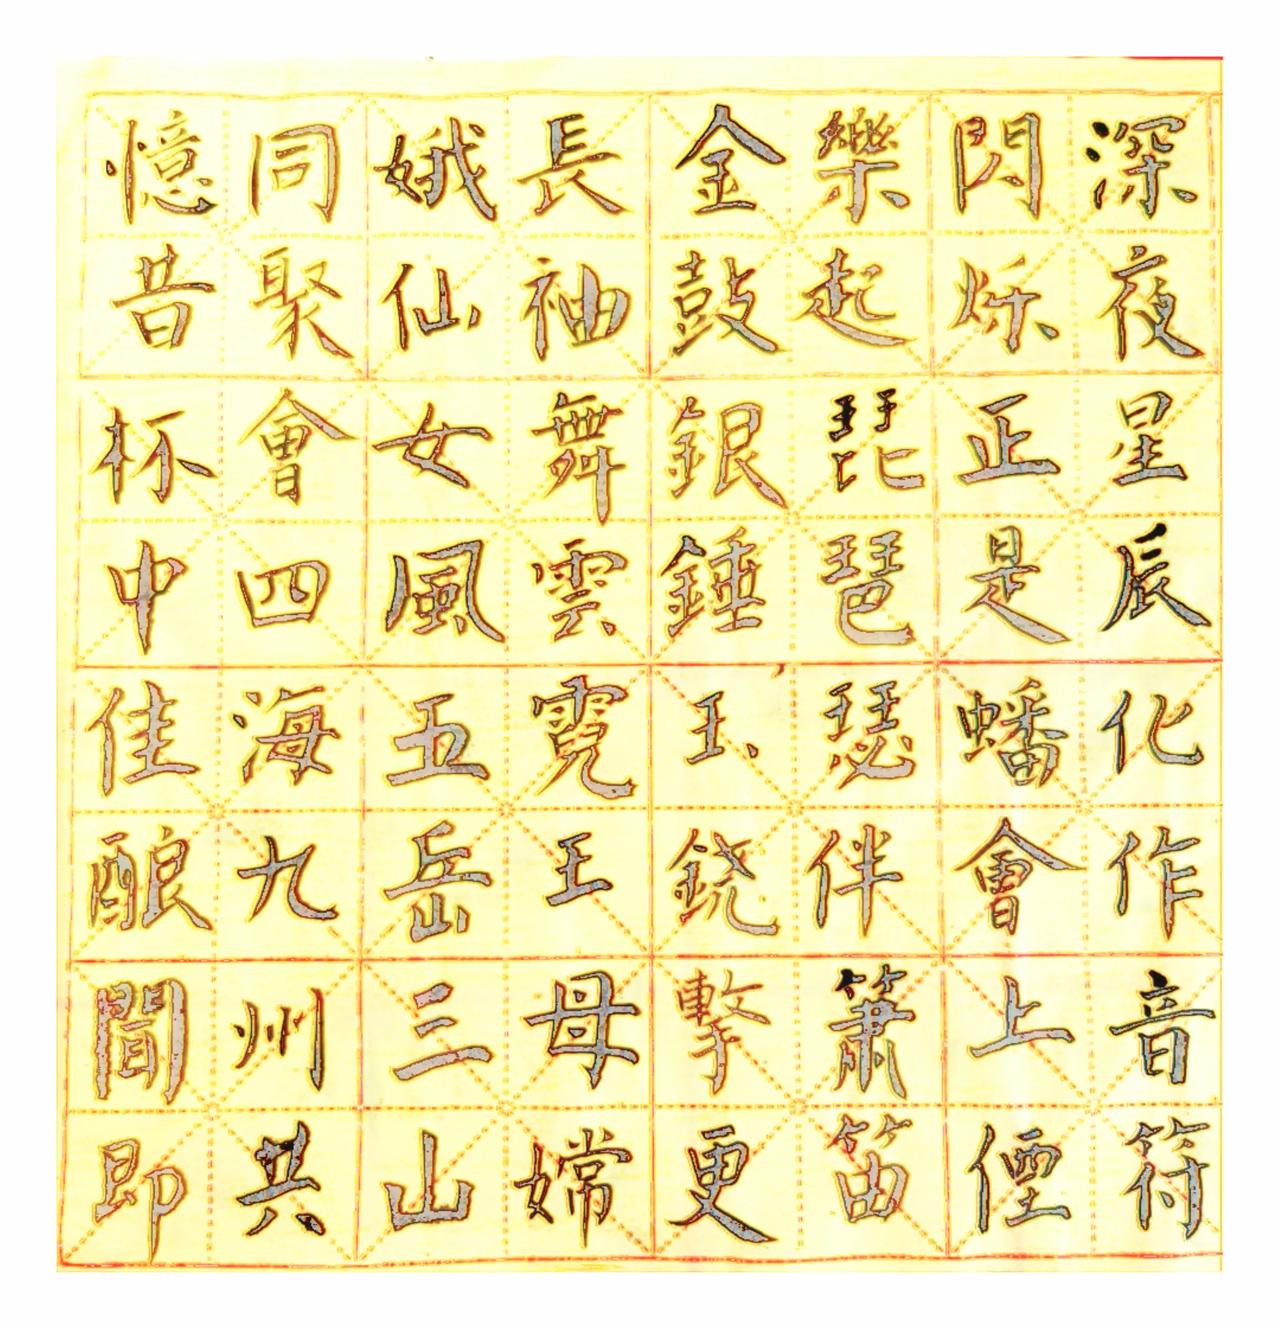 深夜星辰化作音符
閃烁正是蟠會上
樂起琵琶瑟伴簫笛
金鼓銀錘玉铙擊更
長袖舞雲霓王母嫦
娥仙女風五岳三山
同聚會四海九州共
憶昔杯中佳酿間即